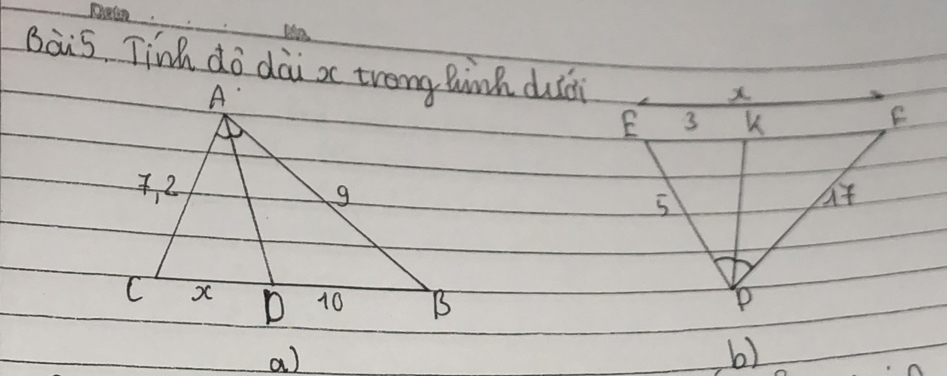 Date No.
Bài 5. Tính độ dài x trong hình dưới
A
7,2 9
C x D 10 B
a)
x
E 3 K F
5 17
P
b)